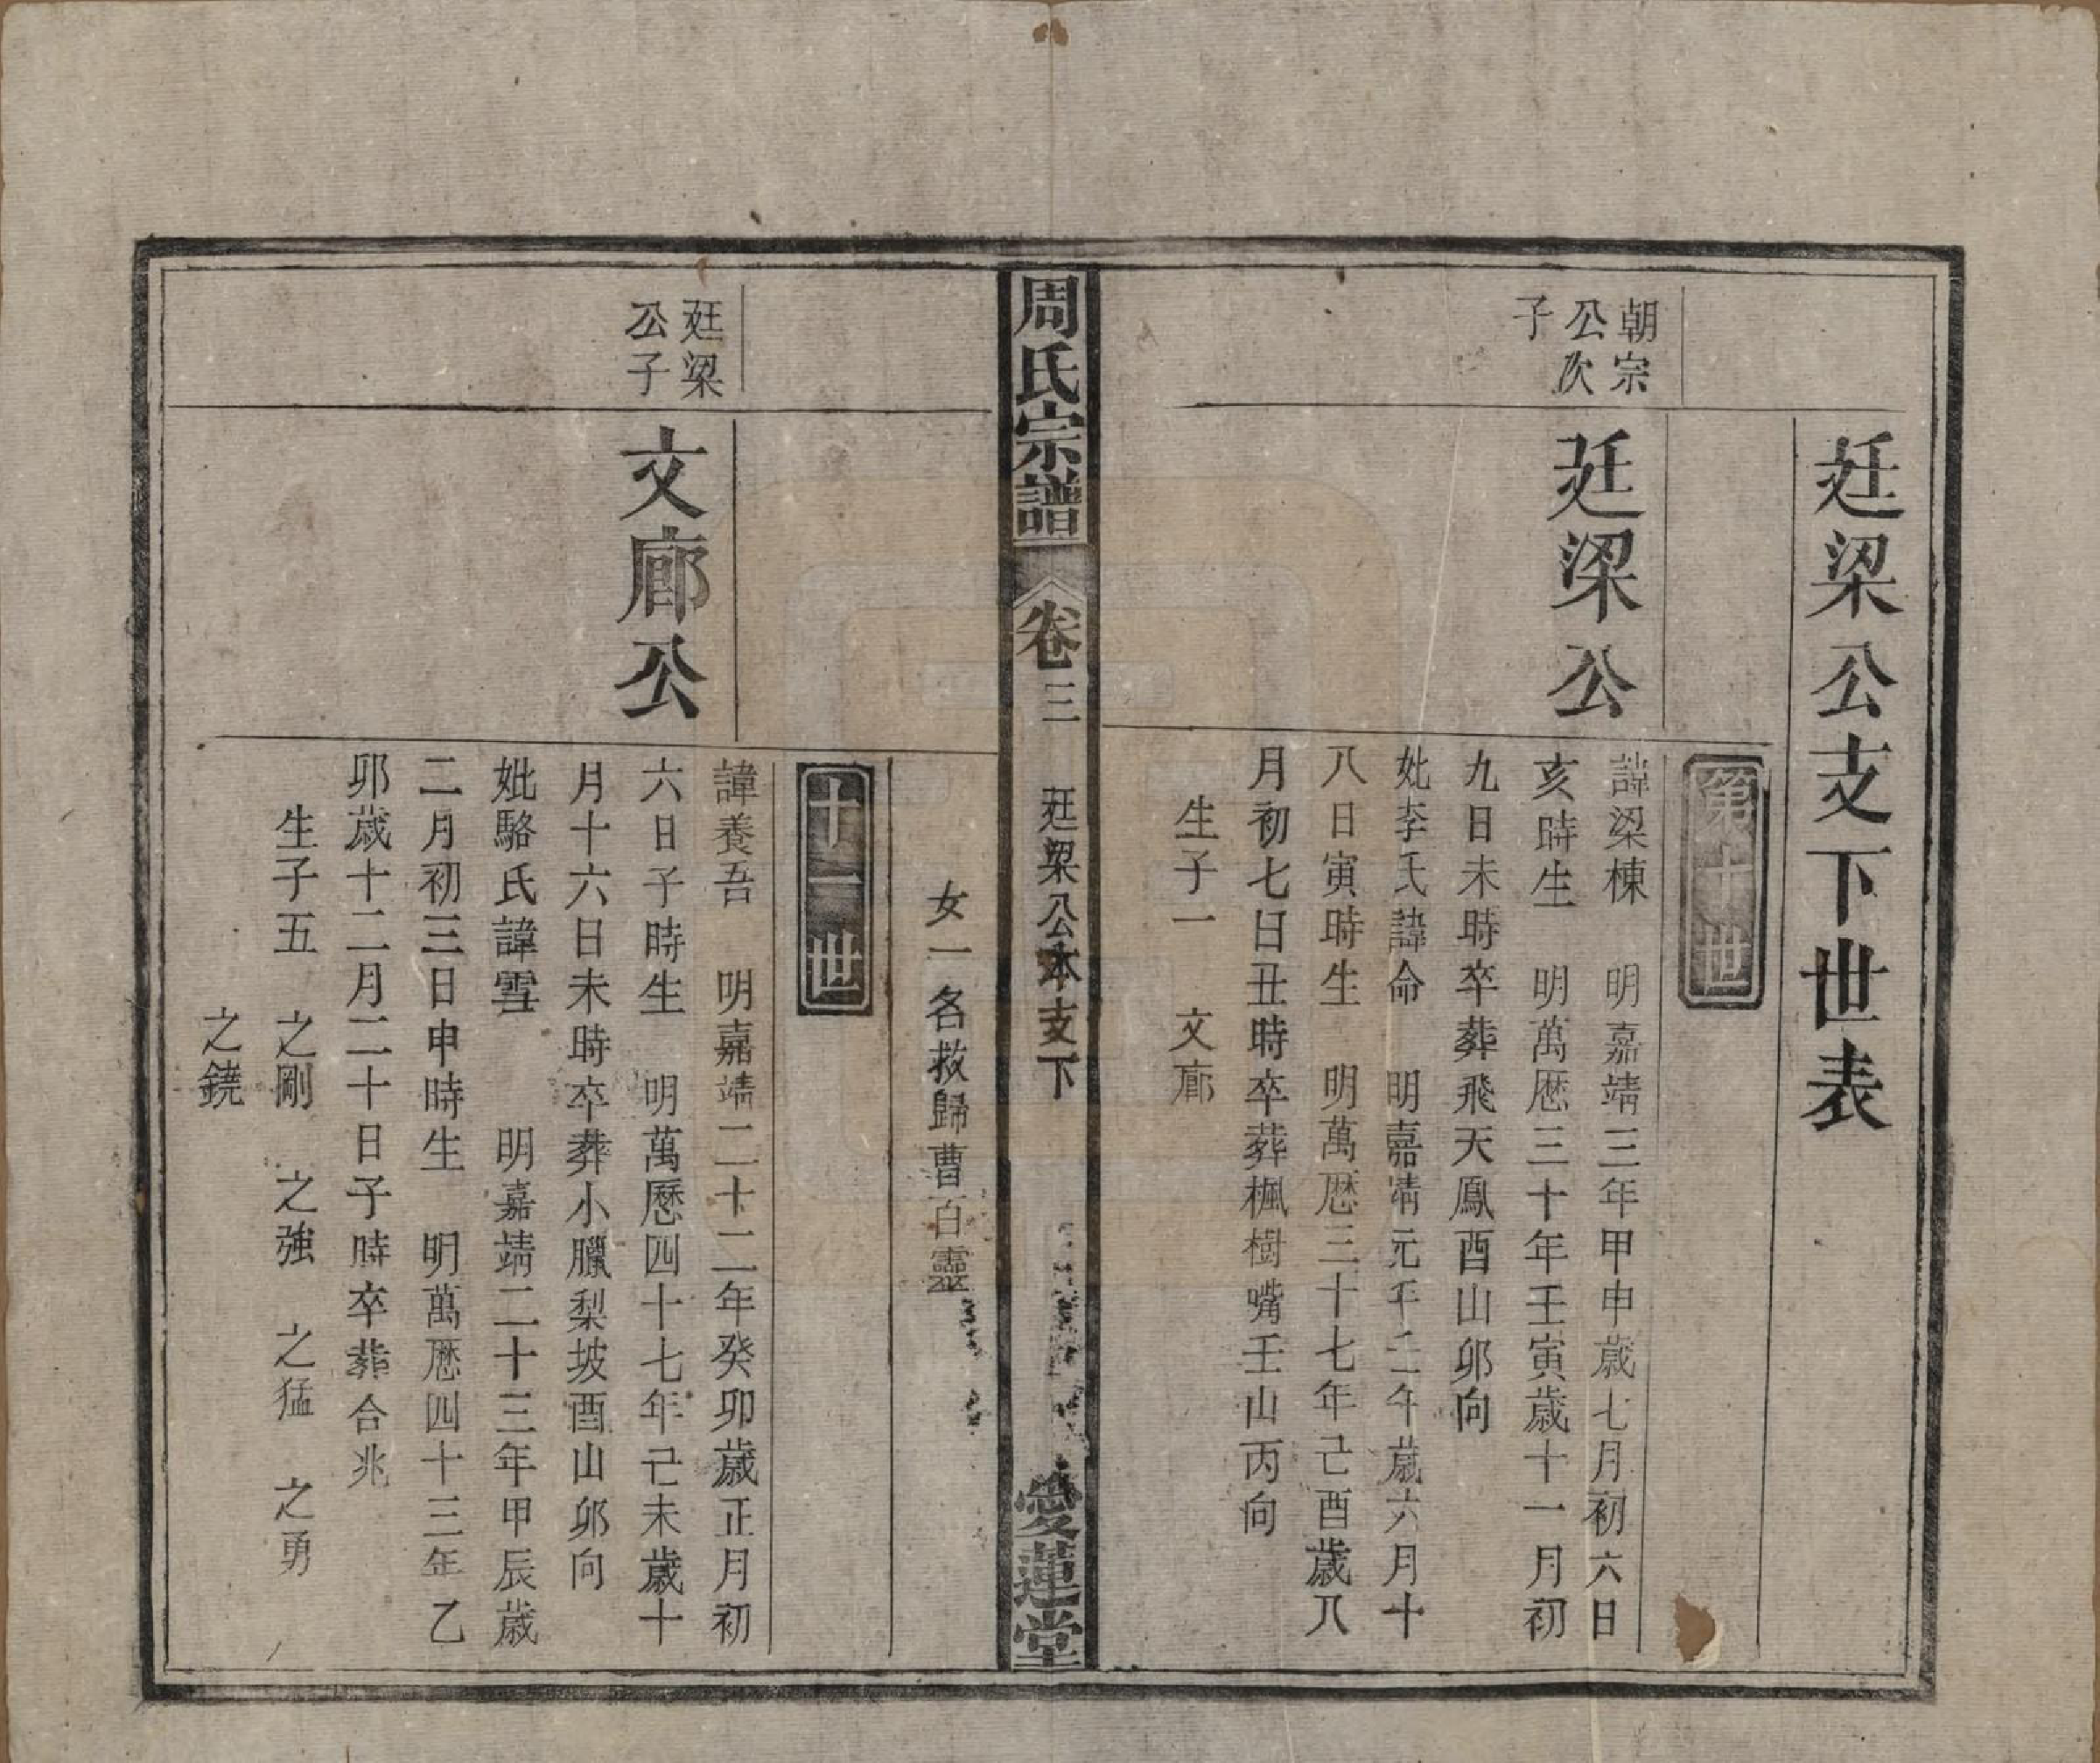 廷梁公支下世表
第十世
朝宗
公次
子
廷梁公
諱梁棟　明嘉靖三年甲申歲七月初六日
亥時生　明萬厯三十年壬寅歲十一月初
九日未時卒葬飛天鳳酉山卯向
妣李氏諱命　明嘉靖元年壬午歲六月十
八日寅時生　明萬厯三十七年己酉歲八
月初七日丑時卒葬楓樹嘴壬山丙向
生子一　文廊
周氏宗譜
卷三
廷梁公本支下
愛蓮堂
女一名救歸曹百靈
十一世
廷梁
公子
文廊公
諱養吾　明嘉靖二十二年癸卯歲正月初
六日子時生　明萬厯四十七年己未歲十
月十六日未時卒葬小臘梨坡酉山卯向
妣駱氏諱雪　明嘉靖二十三年甲辰歲
二月初三日申時生　明萬厯四十三年乙
卯歲十二月二十日子時卒葬合兆
生子五　之剛　之強　之猛　之勇
之鐃